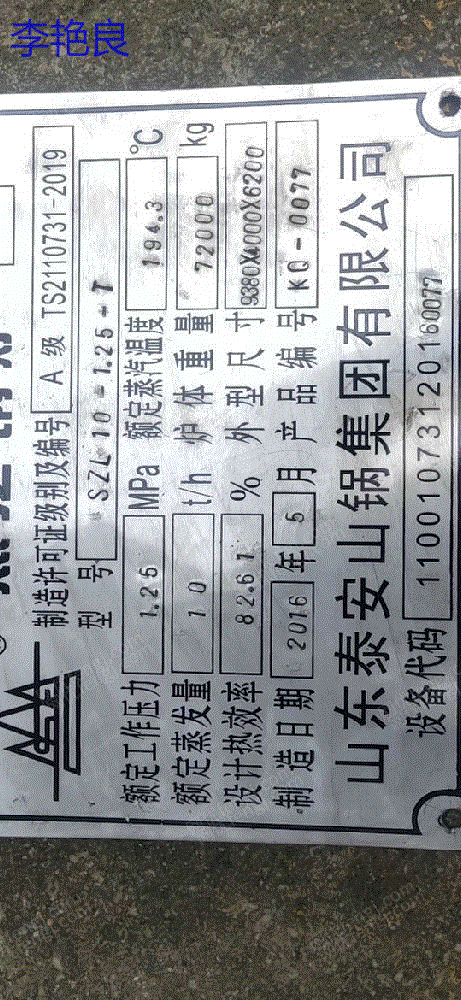 李艳良
制造许可证级别及编号 A 级 TS2110731-2019
型 号 SZL10-1.25-T
额定工作压力 1.25 MPa 额定蒸汽温度 194.3 ℃
额定蒸发量 10 t/h 炉体重量 72000 kg
设计热效率 82.61 % 外型尺寸 9380X4000X6200
制造日期 2016 年 5 月 产品编号 KC-0077
山东泰安山锅集团有限公司
设备代码 11001073120160077